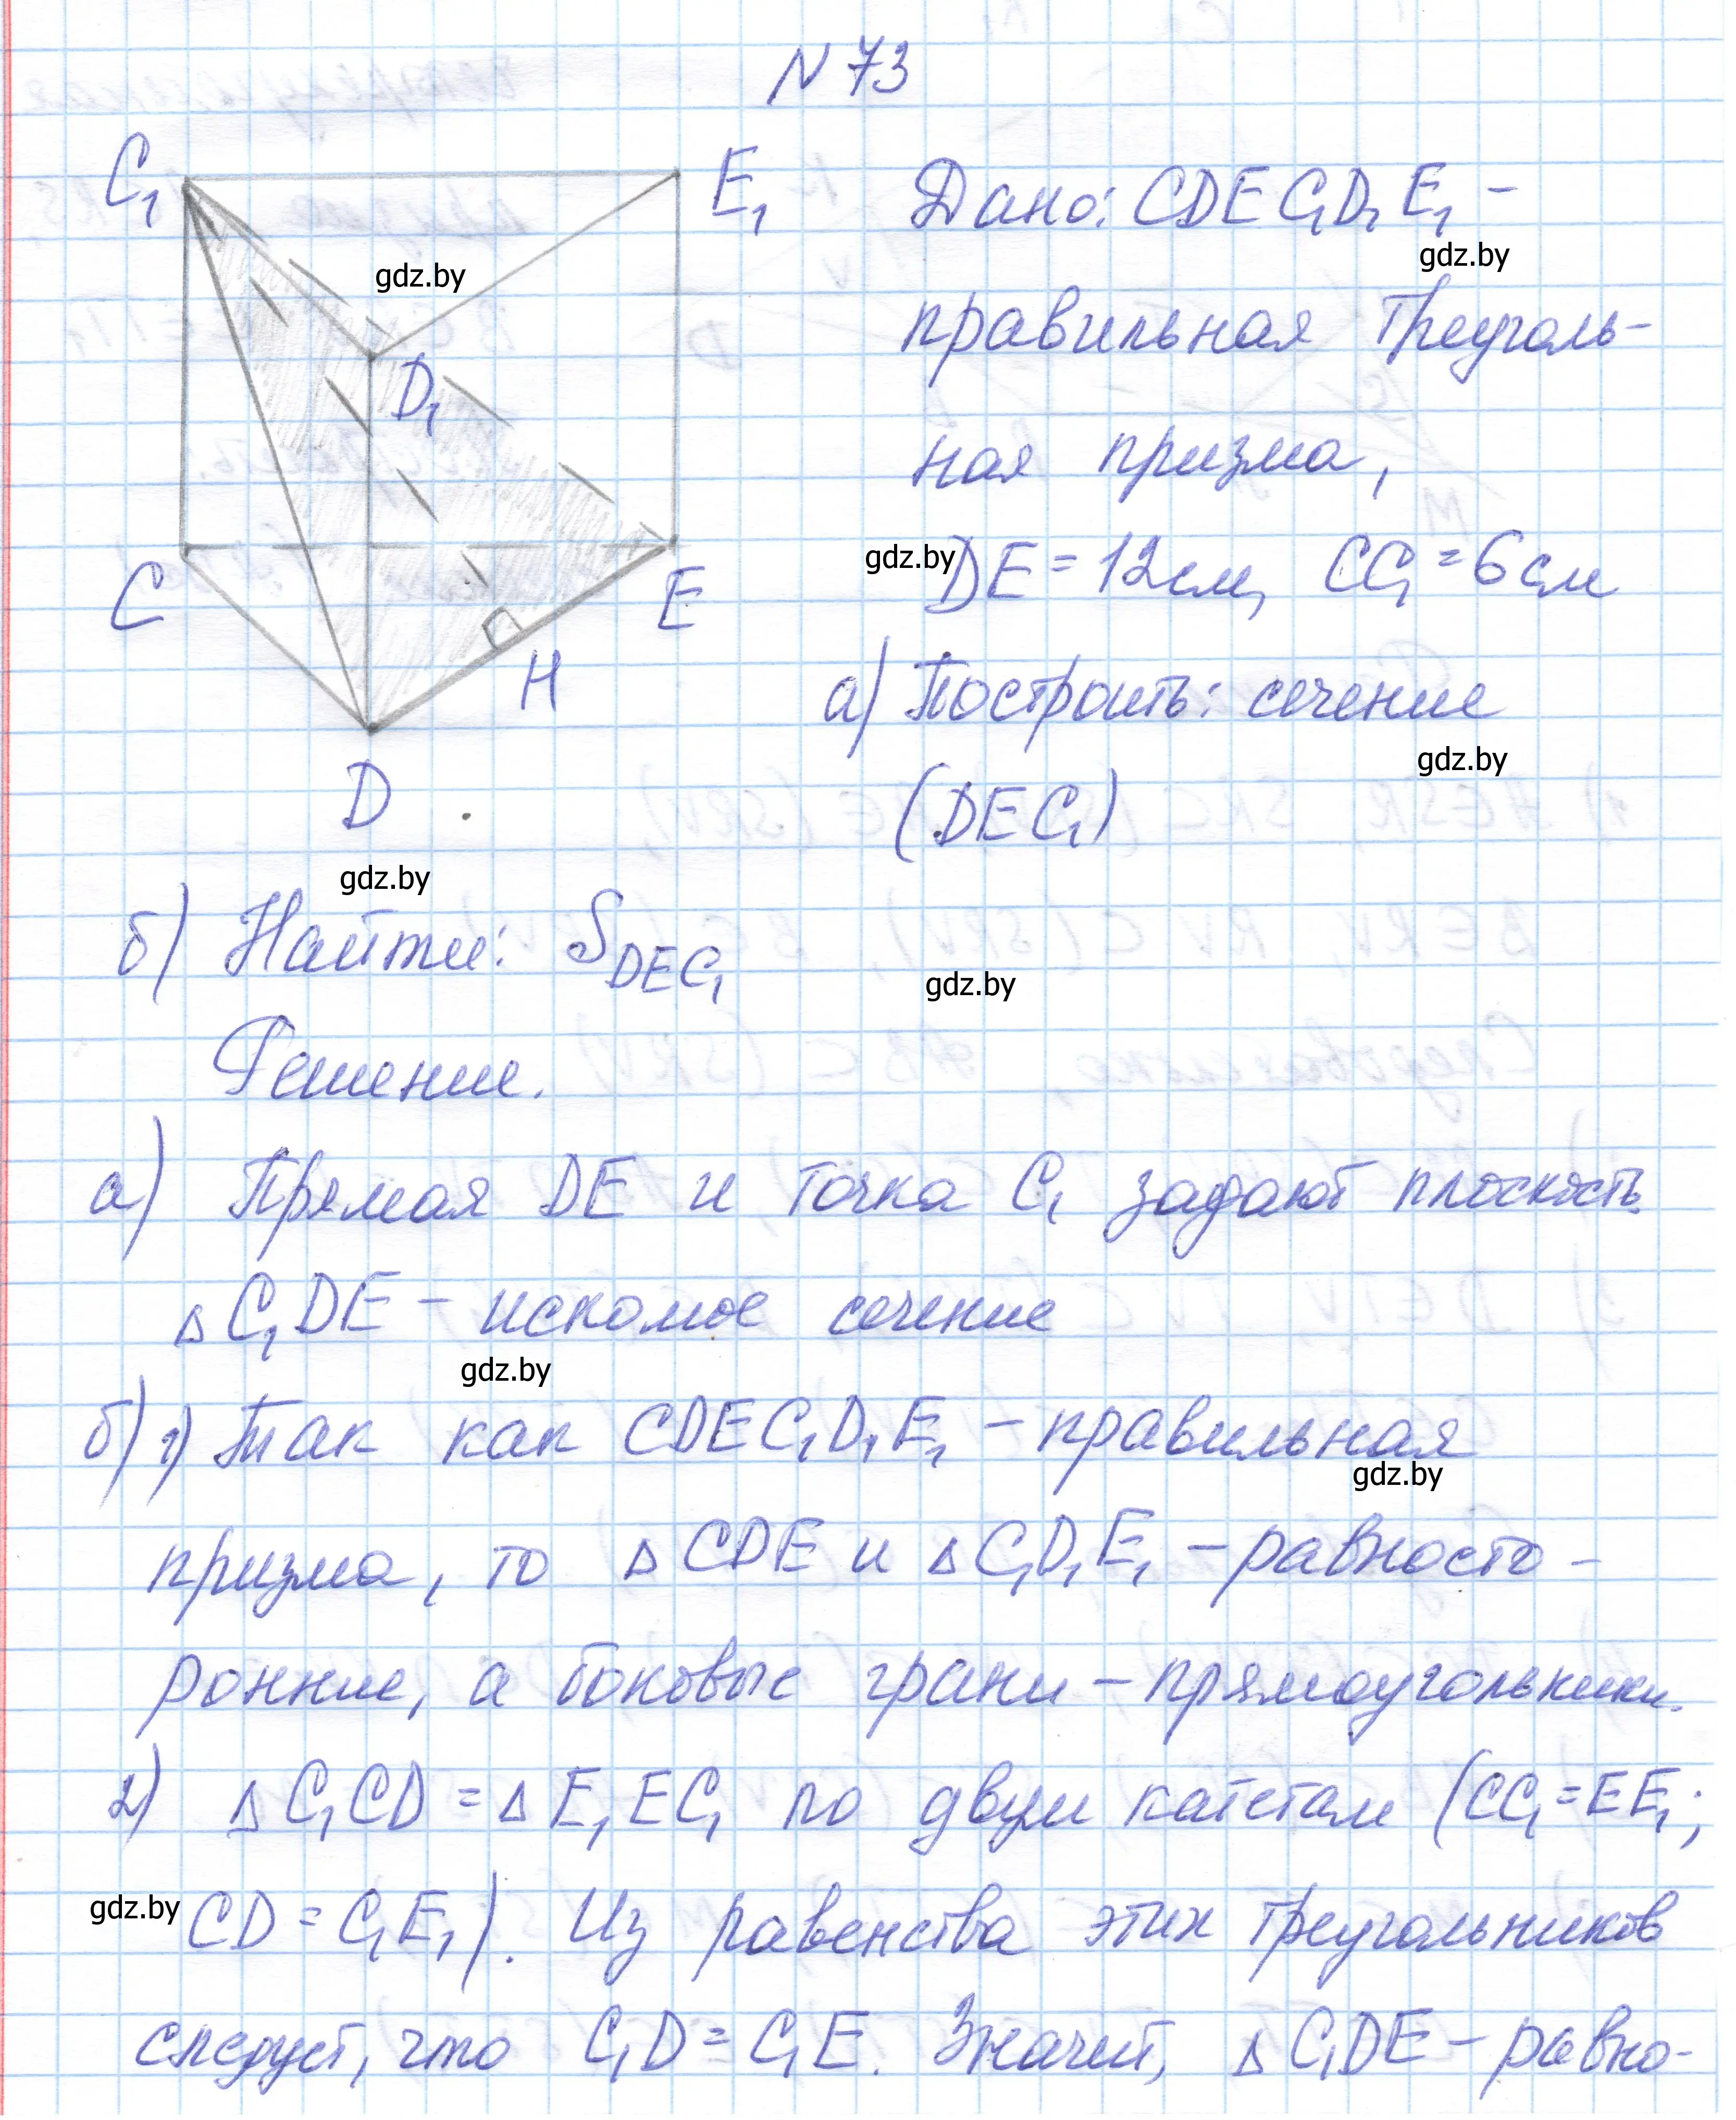 N 73
C₁ E₁ Дано: CDEC₁D₁E₁ –
gdz.by gdz.by
правильная треуголь-
D₁
ная призма,
gdz.by DE = 12см, CC₁ = 6см
C E
H а) Построить: сечение
gdz.by
D (DEC₁)
gdz.by
б) Найти: S DEC₁
gdz.by
Решение.
а) Прямая DE и точка C₁ задают плоскость.
△ C₁DE – искомое сечение
gdz.by
б) 1) Так как CDEC₁D₁E₁ – правильная
gdz.by
призма, то △ CDE и △ C₁D₁E₁ – равносто-
ронние, а боковые грани – прямоугольники.
2) △ C₁CD = △ E₁EC₁ по двум катетам (CC₁ = EE₁;
gdz.by CD = C₁E₁). Из равенства этих треугольников
следует, что C₁D = C₁E. Значит, △ C₁DE – равно-